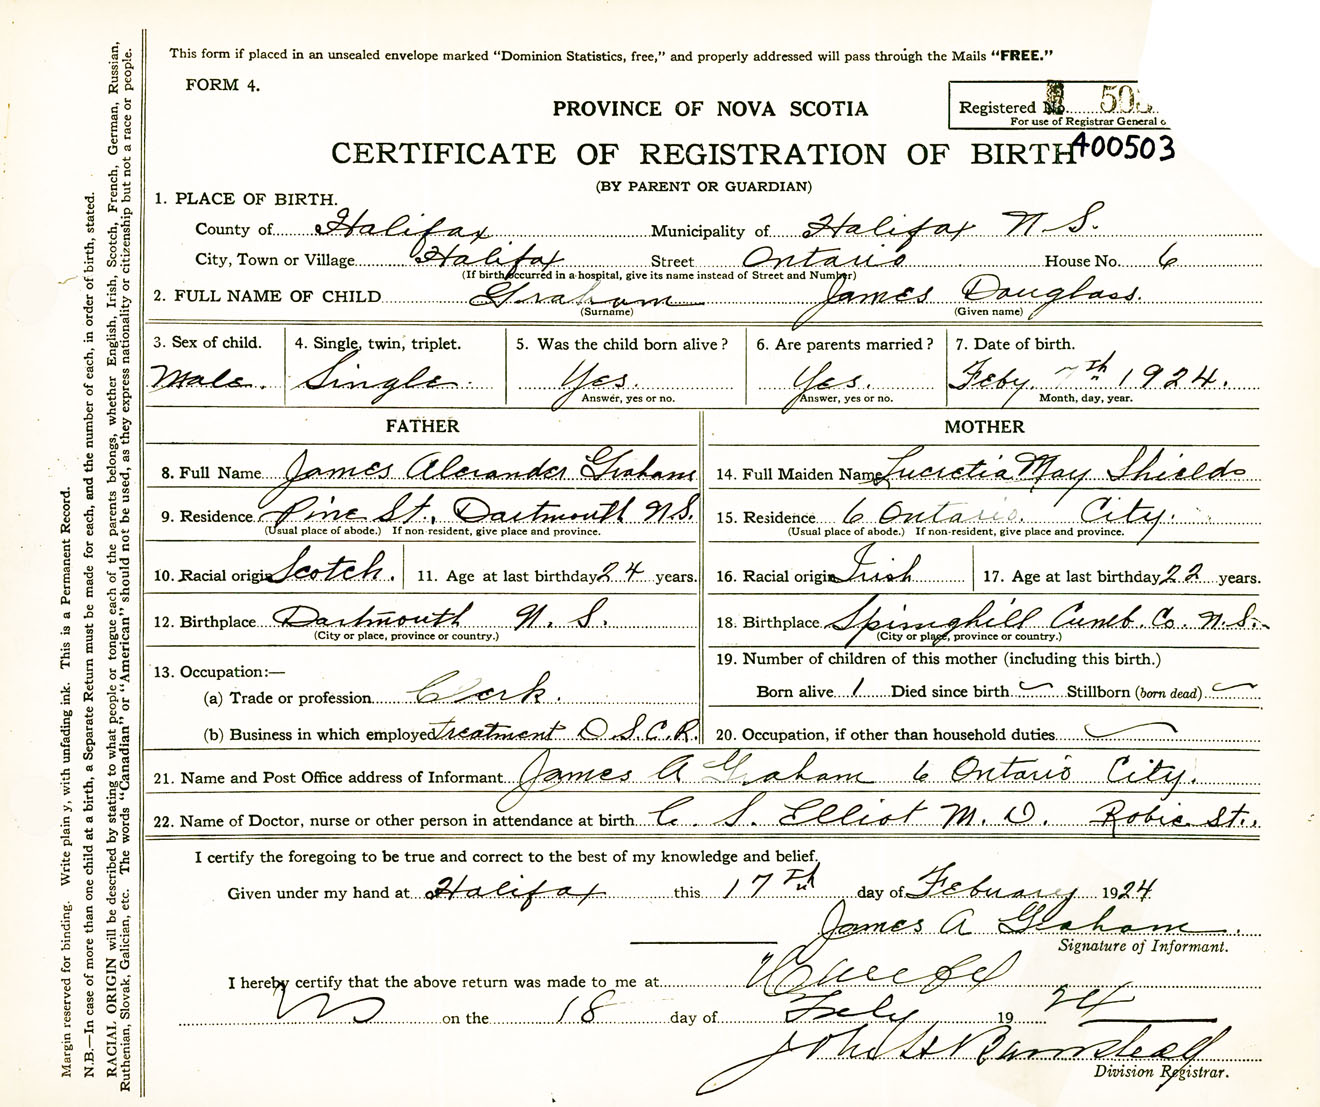 This form if placed in an unsealed envelope marked "Dominion Statistics, free," and properly addressed will pass through the Mails "FREE."
FORM 4.
Registered No. 503
For use of Registrar General o
PROVINCE OF NOVA SCOTIA
400503
CERTIFICATE OF REGISTRATION OF BIRTH
(BY PARENT OR GUARDIAN)
1. PLACE OF BIRTH.
County of Halifax Municipality of Halifax N.S.
City, Town or Village Halifax Street Ontario House No. 6
(If birth occurred in a hospital, give its name instead of Street and Number)
2. FULL NAME OF CHILD Graham James Douglass.
(Surname) (Given name)
3. Sex of child. 4. Single, twin, triplet. 5. Was the child born alive? 6. Are parents married? 7. Date of birth.
Male. Single. Yes. Yes. Feby 7th 1924.
Answer, yes or no. Answer, yes or no. Month, day, year.
FATHER
8. Full Name James Alexander Graham
9. Residence Pine St., Dartmouth N.S.
(Usual place of abode.) If non-resident, give place and province.
10. Racial origin Scotch. 11. Age at last birthday 24 years.
12. Birthplace Dartmouth N.S.
(City or place, province or country.)
13. Occupation:—
(a) Trade or profession Clerk.
(b) Business in which employed Treatment D.S.C.R.
MOTHER
14. Full Maiden Name Lucretia May Shields
15. Residence 6 Ontario. City.
(Usual place of abode.) If non-resident, give place and province.
16. Racial origin Irish 17. Age at last birthday 22 years.
18. Birthplace Springhill Cumb. Co. N.S.
(City or place, province or country.)
19. Number of children of this mother (including this birth.)
Born alive 1 Died since birth Stillborn (born dead)
20. Occupation, if other than household duties
21. Name and Post Office address of Informant James A Graham 6 Ontario City.
22. Name of Doctor, nurse or other person in attendance at birth C. S. Elliot M.D. Robie St.
I certify the foregoing to be true and correct to the best of my knowledge and belief.
Given under my hand at Halifax this 17th day of February 1924
James A Graham.
Signature of Informant.
I hereby certify that the above return was made to me at
on the 18 day of Feby 1924
John H Barnstead
Division Registrar.
Margin reserved for binding. Write plainly, with unfading ink. This is a Permanent Record.
N.B.—In case of more than one child at a birth, a Separate Return must be made for each, and the number of each, in order of birth, stated.
RACIAL ORIGIN will be described by stating to what people or tongue each of the parents belongs, whether English, Irish, Scotch, French, German, Russian,
Ruthenian, Slovak, Galician, etc. The words "Canadian" or "American" should not be used, as they express nationality or citizenship but not a race or people.